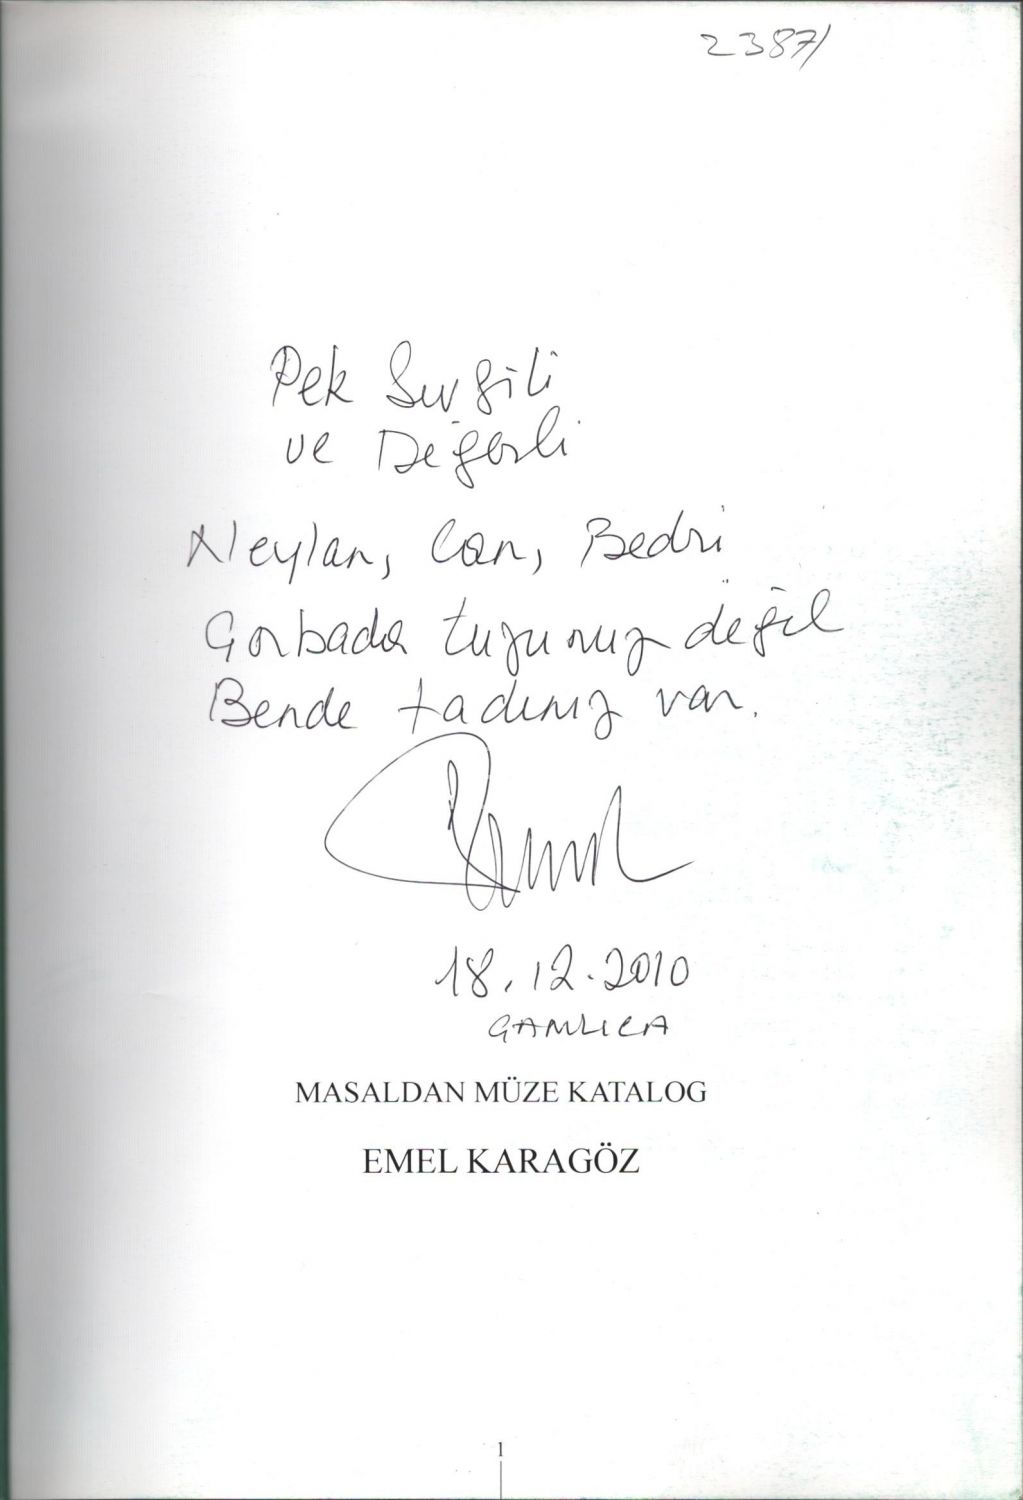 2387/
Pek Sevgili
ve Değerli
Neylan, Can, Bedri
Çorbada tuzunuz değil
Bende tadınız var.
18.12.2010
ÇAMLICA
MASALDAN MÜZE KATALOG
EMEL KARAGÖZ
1